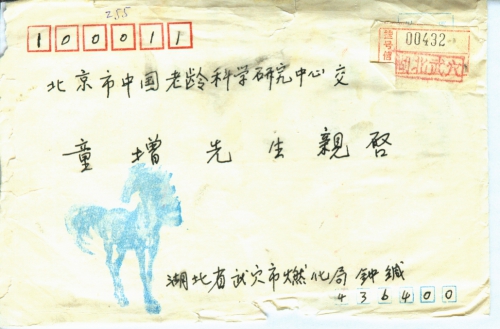 255
100011
挂号信
00432
湖北武穴
北京市中国老龄科学研究中心交
童增先生親启
湖北省武穴市燃化局 钟缄
436400